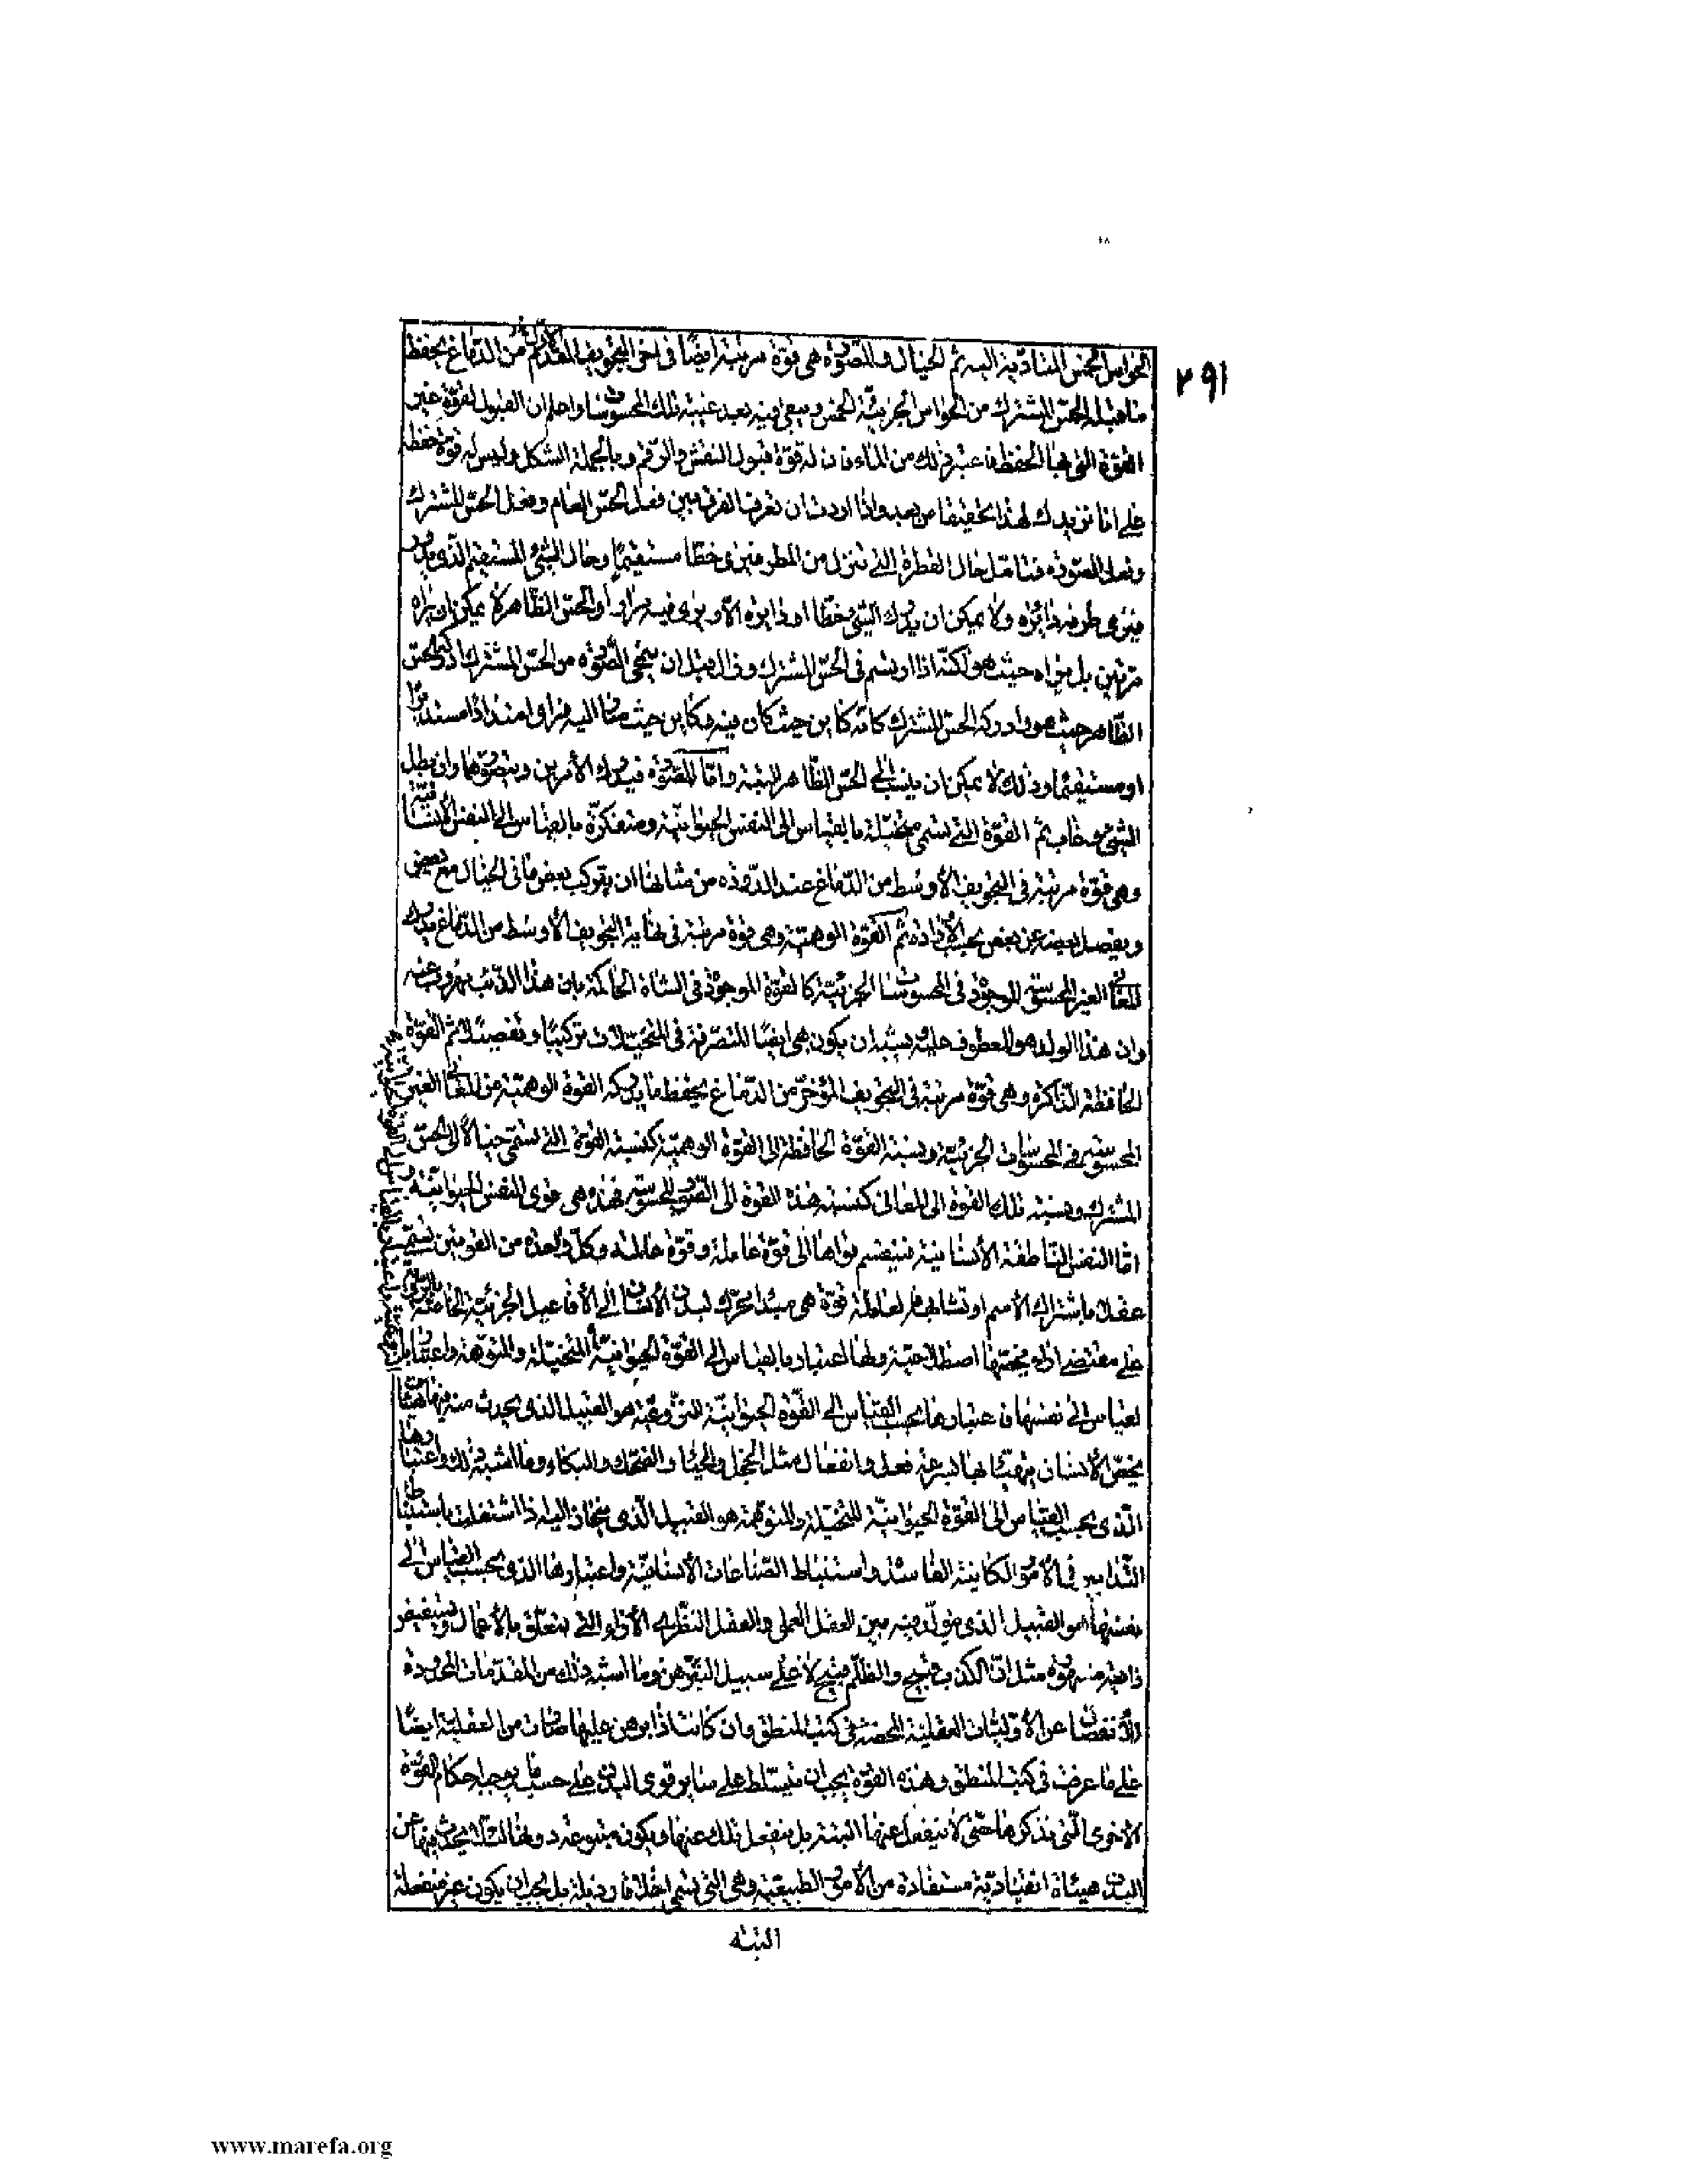 ٢٩١
الحواس الخمس المتادية اليه ثم الخيال والمصورة هى قوة مرتبة ايضا فى اخر التجويف المقدم من الدماغ يحفظ
ما قبله الحس المشترك من الحواس الجزئية الخمس ويبقى فيه بعد غيبة تلك المحسوسات واعلم ان القبول لقوة غير
القوة التى بها الحفظ فاعتبر ذلك من الماء فان له قوة قبول النقش والرقم وبالجملة الشكل وليس له قوة حفظه
على انا نزيدك لهذا تحقيقا من بعد واذا اردت ان تعرف الفرق بين فعل الحس العام وفعل الحس المشترك
وفعل المصورة فتامل حال القطرة التى تنزل من المطر فيرى خطا مستقيما وحال الشئ المستقيم الذى يدور
فيرى طرفه دائرة ولا يمكن ان يدرك الشئ خطا او دائرة الا ويرى فيه مرارا والحس الظاهر لا يمكن ان يراه
مرتين بل يراه حيث هو لكنه اذا ارتسم فى الحس المشترك وزال قبل ان تنمحى الصورة من الحس المشترك ادركه الحس
الظاهر حيث هو وادركه الحس المشترك كانه كاين حيث كان فيه وكاين حيث صار اليه فراى امتدادا مستديرا
او مستقيما وذلك لا يمكن ان ينسب الى الحس الظاهر البتة واما المصورة فيدرك الأمرين ويتصورهما وان بطل
الشئ وغاب ثم القوة التى تسمى متخيلة بالقياس الى النفس الحيوانية ومتفكرة بالقياس الى النفس الأنسانية
وهى قوة مرتبة فى التجويف الأوسط من الدماغ عند الدودة من شانها ان يتركب بعض ما فى الخيال مع بعض
ويفصل بعضه عن بعض بحسب الأرادة ثم القوة الوهمية وهى قوة مرتبة فى نهاية التجويف الأوسط من الدماغ يدرك
المعانى الغير المحسوسة الموجودة فى المحسوسات الجزئية كالقوة الموجودة فى الشاة الحاكمة بان هذا الذئب مهروب عنه
وان هذا الولد هو المعطوف عليه ويشبه ان يكون هى ايضا المتصرفة فى المتخيلات تركيبا وتفصيلا ثم القوة
الحافظة الذاكرة وهى قوة مرتبة فى التجويف المؤخر من الدماغ يحفظ ما يدركه القوة الوهمية من المعانى الغير
المحسوسة فى المحسوسات الجزئية ونسبة القوة الحافظة الى القوة الوهمية كنسبة القوة التى تسمى خيالا الى الحس
المشترك ونسبة تلك القوة الى المعانى كنسبة هذه القوة الى الصور المحسوسة فهذه هى قوى النفس الحيوانية و
اما النفس الناطقة الأنسانية فينقسم قواها الى قوة عاملة وقوة عالمة وكل واحدة من القوتين تسمى
عقلا باشتراك الأسم او تشابهه فالعاملة قوة هى مبدأ محرك لبدن الأنسان الى الأفاعيل الجزئية الخاصة بالروية
على مقتضى اراء يخصها اصطلاحية ولها اعتبار بالقياس الى القوة الحيوانية المتخيلة والمتوهمة واعتبار
لقياس الى نفسها فاعتبارها بحسب القياس الى القوة الحيوانية النزوعية هو القبيل الذى يحدث منه فيها هيئات
يخص الأنسان يتهيئا بها لسرعة فعل وانفعال مثل الخجل والحياء والضحك والبكاء وما اشبه ذلك واعتبارها
الذى بحسب القياس الى القوة الحيوانية المتخيلة والمتوهمة هو القبيل الذى ينحاز اليه اذا اشتغلت باستنباط
التدابير فى الأمور الكاينة الفاسدة واستنباط الصناعات الأنسانية واعتبارها الذى بحسب القياس الى
نفسها هو القبيل الذى يتولد فيه بين العقل العملى والعقل النظرى الأراء التى يتعلق بالأعمال ويستفيض
ذايعة مشهورة مثل ان الكذب قبيح والظلم قبيح لا على سبيل التبرهن وما اشبه ذلك من المقدمات المحدودة
الأنفصال عن الأوليات العقلية المحضة فى كتب المنطق وان كانت اذا برهن عليها صارت من العقلية ايضا
على ما عرفت فى كتب المنطق وهذه القوة يجب ان يتسلط على ساير قوى البدن على حسب ما يوجبه احكام القوة
الاخرى التى نذكرها حتى لا ينفعل عنها البتة بل ينفعل تلك عنها ويكون مقموعة دونها لئلا يحدث فيها عن
البدن هيئات انقيادية مستفادة من الأمور الطبيعية وهى التى تسمى اخلاقا رذيلة بل يجب ان يكون غير منفعلة
البتة
www.marefa.org